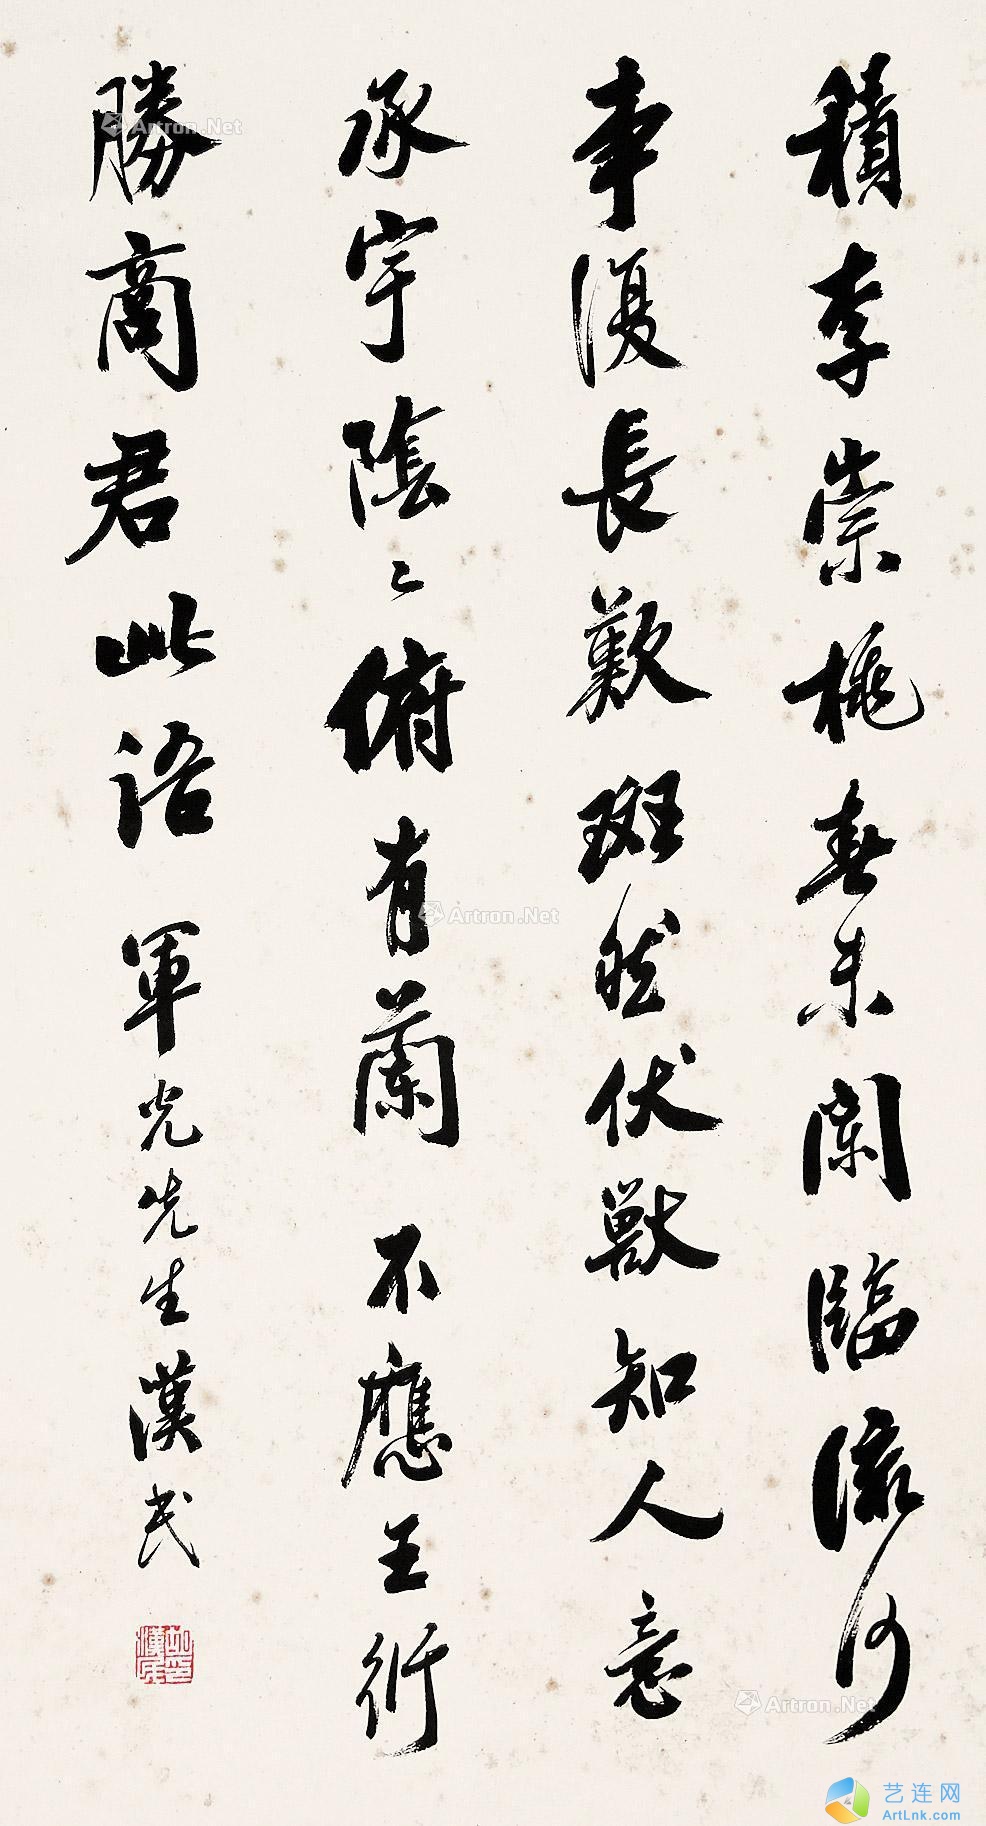 積李崇桃春未闌臨流何
事復長歎斑然伏獸知人意
承宇陰〻俯有蘭不應王衍
勝商君此語 軍光先生 漢民
胡漢民印
Artron.Net
Artron.Net
Artron.Net
艺连网
ArtLnk.com